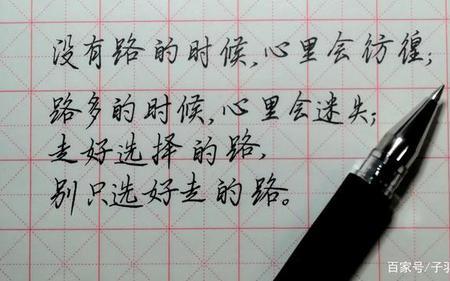 没有路的时候,心里会彷徨;
路多的时候,心里会迷失;
走好选择的路,
别只选好走的路。
百家号/子羽